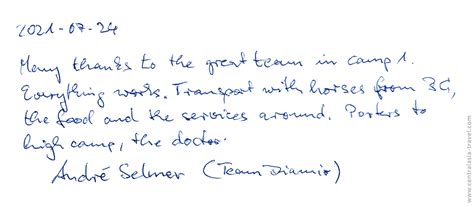 2021-07-24
Many thanks to the great team in camp 1.
Everything works. Transport with horses from BC,
the food and the services around. Porters to
high camp, the doctor.
André Selmer (Team Diamir)
www.centralasia-travel.com